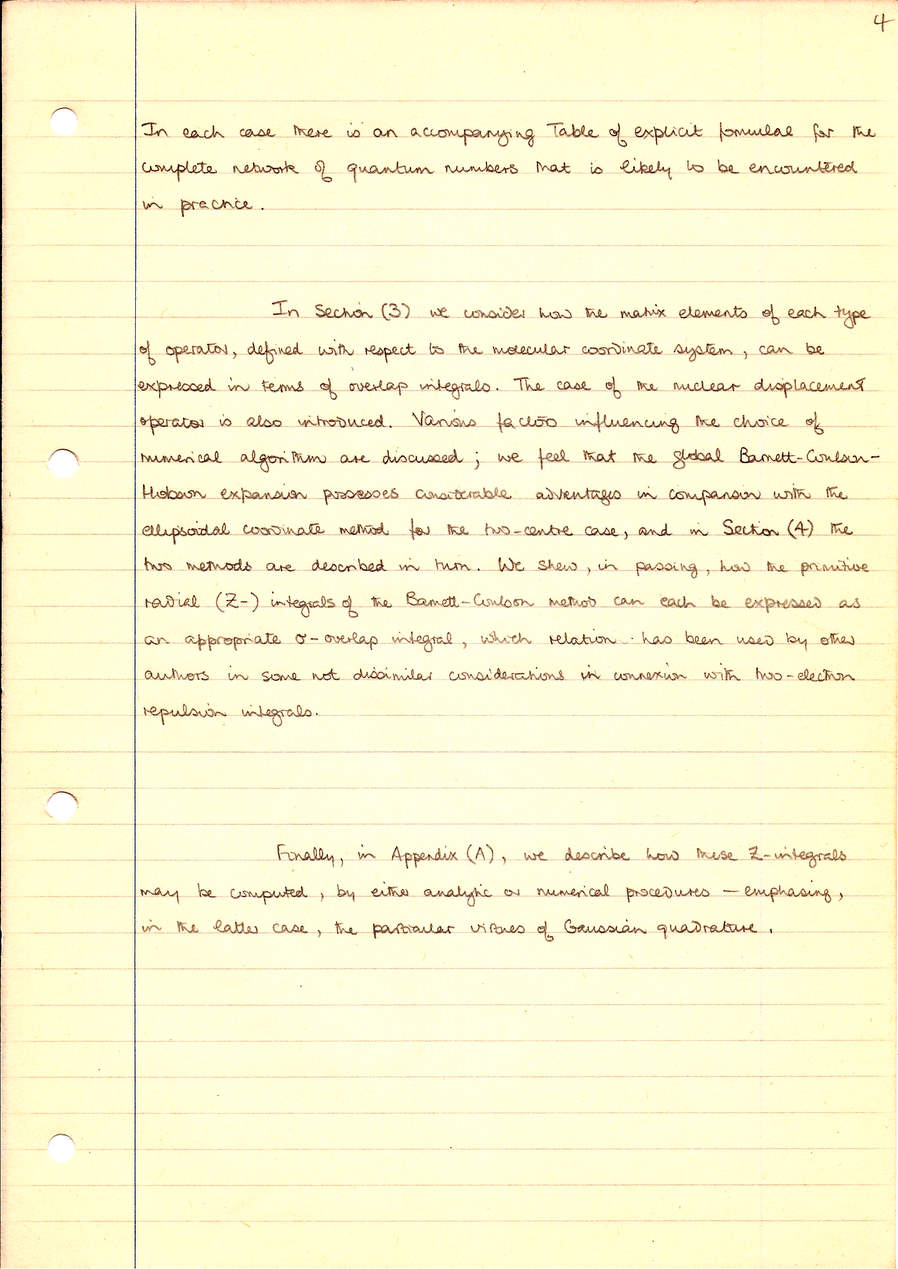 4
In each case there is an accompanying Table of explicit formulae for the
complete network of quantum numbers that is likely to be encountered
in practice.
In Section (3) we consider how the matrix elements of each type
of operator, defined with respect to the molecular coordinate system, can be
expressed in terms of overlap integrals. The case of the nuclear displacement
operator is also introduced. Various factors influencing the choice of
numerical algorithm are discussed; we feel that the global Barnett-Coulson-
Hobson expansion possesses considerable advantages in comparison with the
ellipsoidal coordinate method for the two-centre case, and in Section (4) the
two methods are described in turn. We shew, in passing, how the primitive
radial (Z-) integrals of the Barnett-Coulson method can each be expressed as
an appropriate σ-overlap integral, which relation has been used by other
authors in some not dissimilar considerations in connexion with two-electron
repulsion integrals.
Finally, in Appendix (A), we describe how these Z-integrals
may be computed, by either analytic or numerical procedures — emphasing,
in the latter case, the particular virtues of Gaussian quadrature.